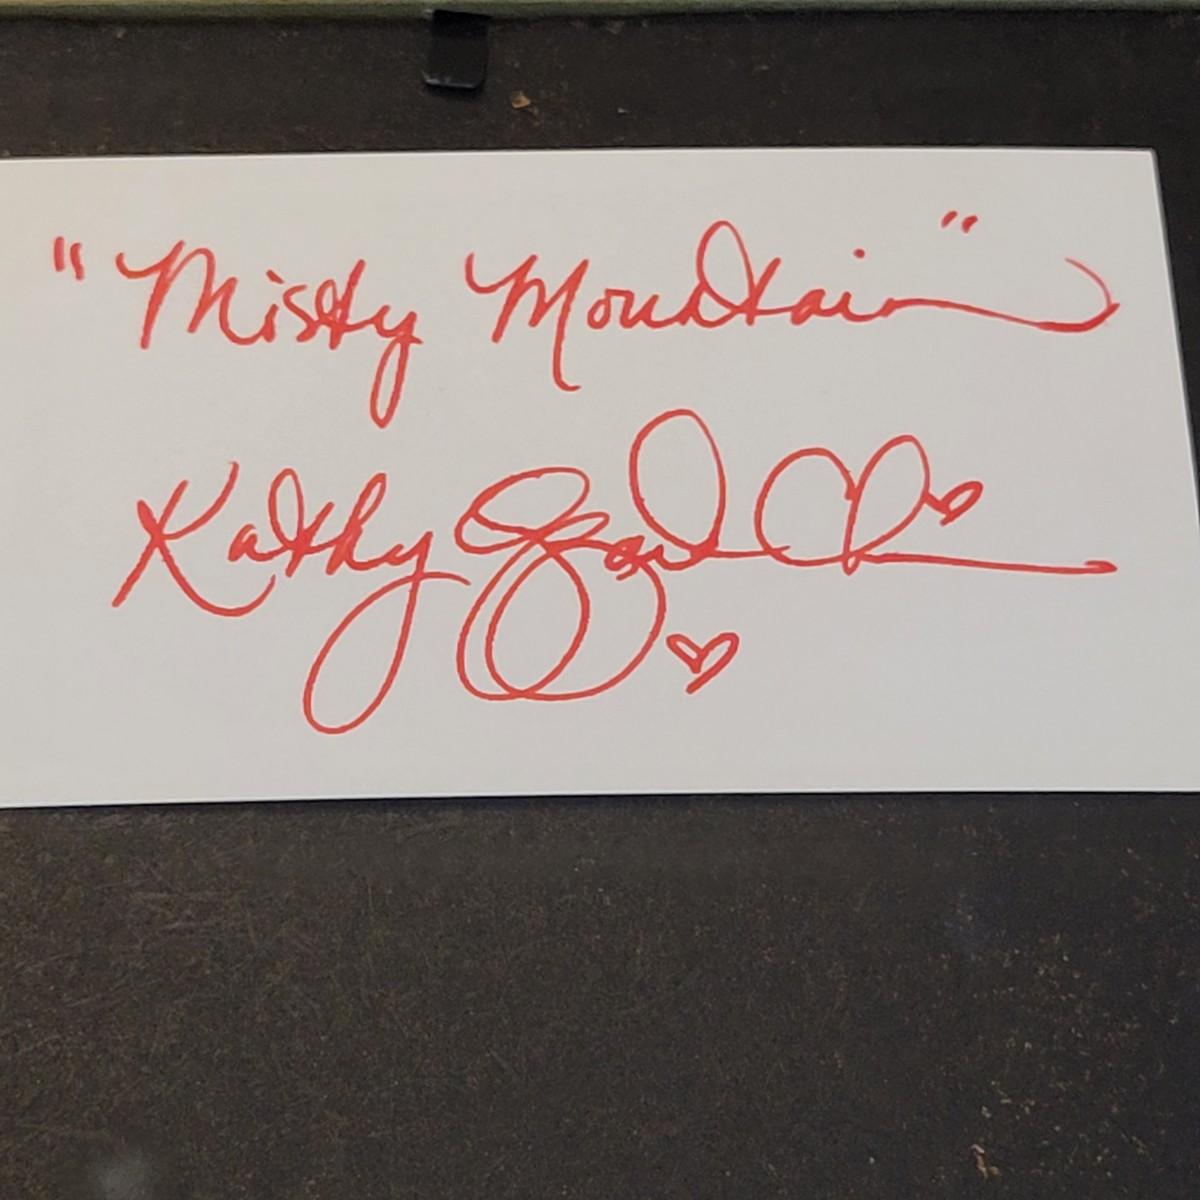 "Misty Mountain"
Kathy